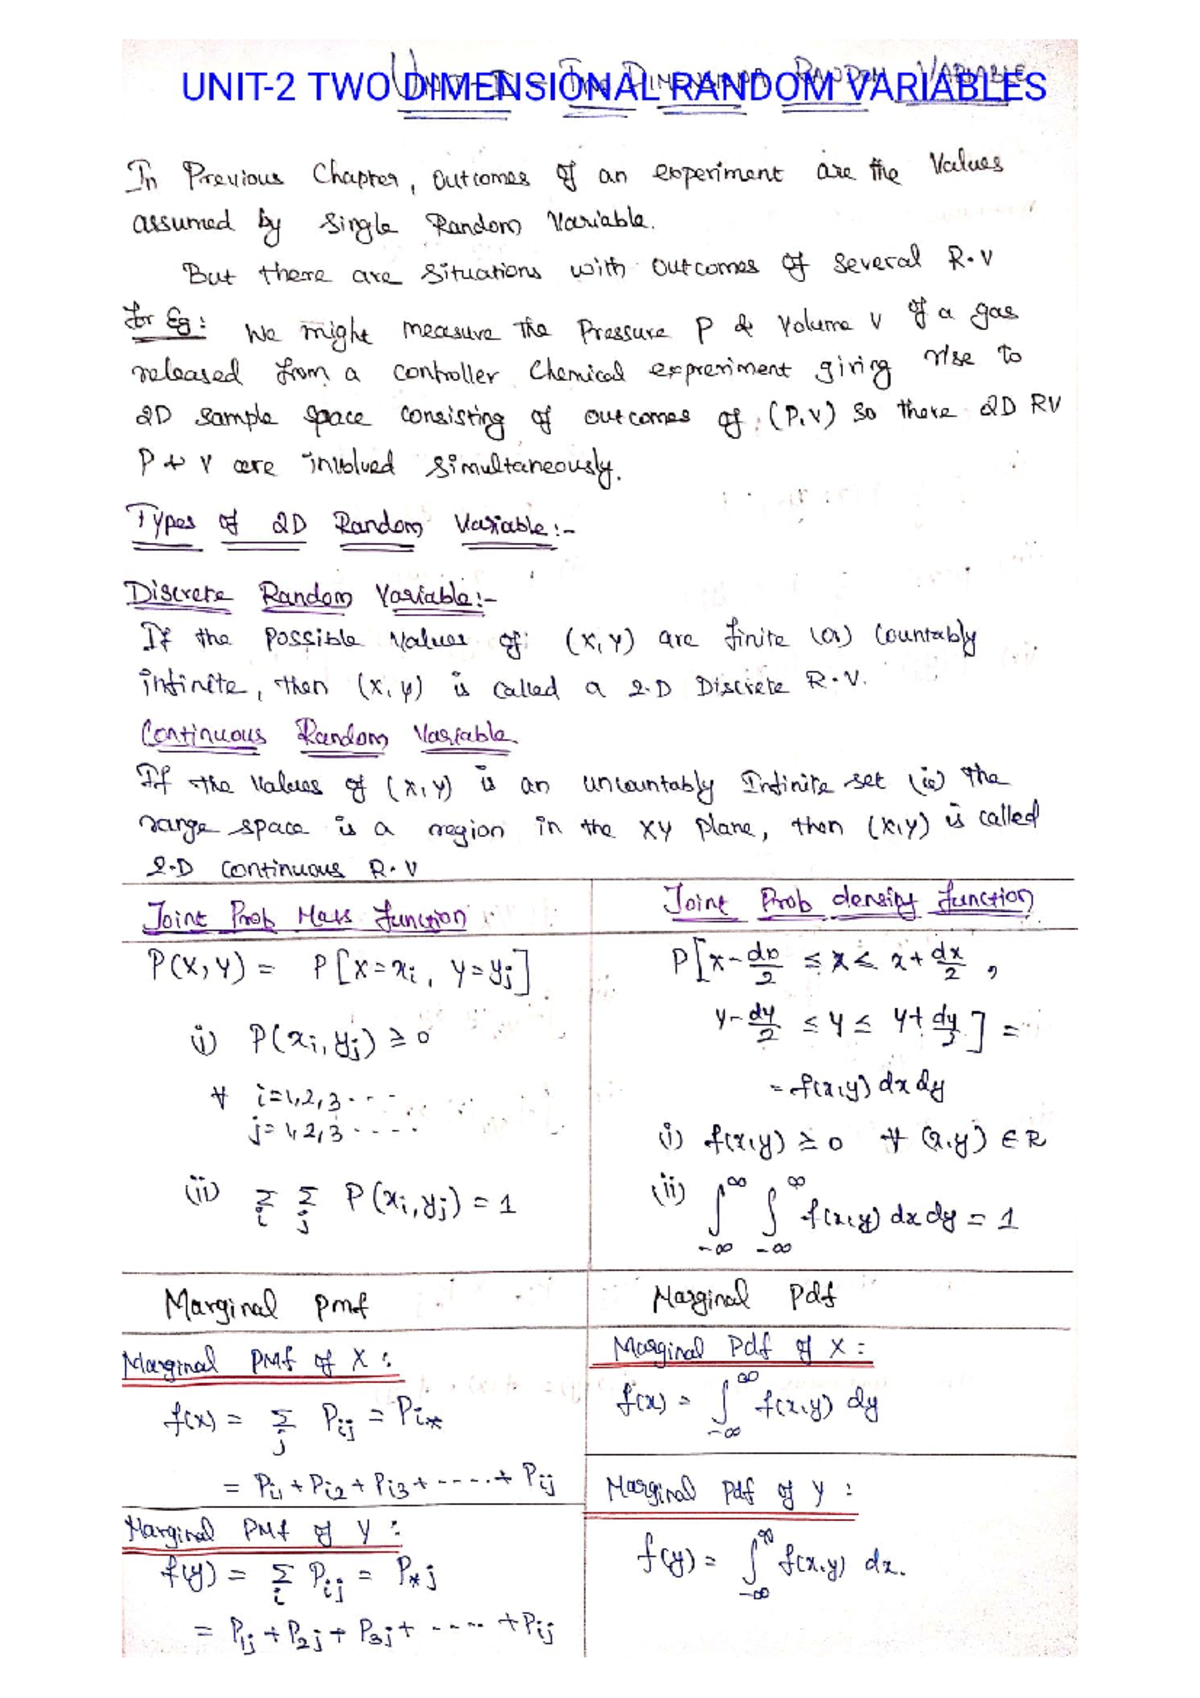 UNIT-2 TWO DIMENSIONAL RANDOM VARIABLES
In Previous Chapter, Outcomes of an experiment are the Values
assumed by Single Random Variable.
But there are Situations with Outcomes of Several R.V
For Eg: We might measure The Pressure P & Volume V of a gas
released from a controller Chemical expreriment giving rise to
2D Sample Space Consisting of outcomes of (P,V) So there 2D RV
P & V are involved Simultaneously.
Types of 2D Random Variable:-
Discrete Random Variable:-
If the Possible Values of (X,Y) are finite (or) Countably
infinite, then (X,Y) is called a 2-D Discrete R.V.
Continuous Random Variable
If the Values of (X,Y) is an uncountably Infinite set (ie) The
range space is a region in the XY plane, then (X,Y) is called
2-D Continuous R.V
Joint Prob Mass function
P(X,Y) = P[X=xi, Y=yj]
i) P(xi,yj) ≥ 0
∀ i=1,2,3....
j=1,2,3.....
(ii) Σi Σj P(xi,yj) = 1
Joint Prob density function
P[x-dx/2 ≤ X ≤ x+dx/2,
y-dy/2 ≤ Y ≤ y+dy/2] =
= f(x,y) dx dy
(i) f(x,y) ≥ 0 ∀ (x,y) ∈ R
(ii) ∫-∞^∞ ∫-∞^∞ f(x,y) dx dy = 1
Marginal pmf
Marginal PMf of X:
f(x) = Σj Pij = Pi*
= Pi1 + Pi2 + Pi3 + ....+ Pij
Marginal PMf of Y:
f(y) = Σi Pij = P*j
= P1j + P2j + P3j + .... + Pij
Marginal Pdf
Marginal Pdf of X:
f(x) = ∫-∞^∞ f(x,y) dy
Marginal Pdf of Y:
f(y) = ∫-∞^∞ f(x,y) dx.